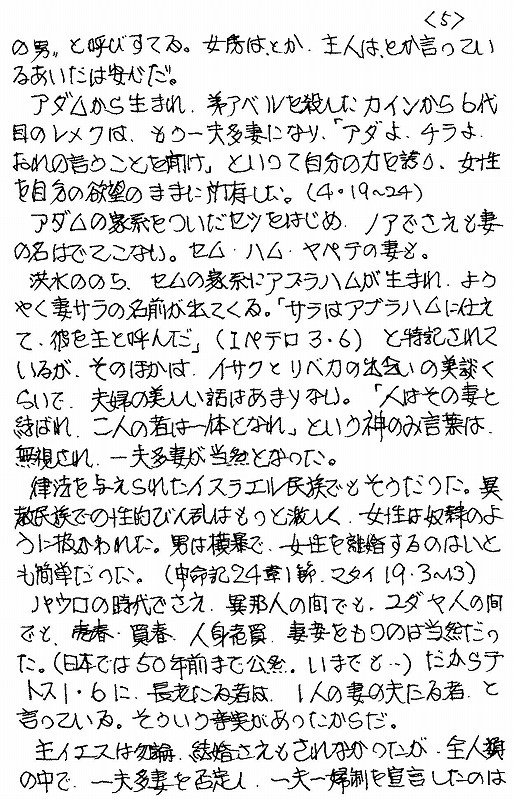 <5>
の男〟と呼びすてる。女房は、とか、主人は、とか言ってい
るあいだは安心だ。
アダムから生まれ、弟アベルを殺したカインから6代
目のレメクは、もう一夫多妻になり、「アダよ、チラよ、
おれの言うことを聞け」といって自分の力を誇り、女性
を自分の欲望のままに所有した。(4・19~24)
アダムの家系をついだセツをはじめ、ノアでさえも妻
の名はでてこない。セム・ハム・ヤペテの妻も。
洪水ののち、セムの家系にアブラハムが生まれ、よう
やく妻サラの名前が出てくる。「サラはアブラハムに仕え
て、彼を主と呼んだ」(Iペテロ3・6)と特記されて
いるが、そのほかは、イサクとリベカの出会いの美談く
らいで、夫婦の美しい話はあまりない。「人はその妻と
結ばれ、二人の者は一体となれ」という神のみ言葉は、
無視され、一夫多妻が当然となった。
律法を与えられたイスラエル民族でもそうだった。異
教民族での性的びん乱はもっと激しく、女性は奴隷のよ
うに扱かわれた。男は横暴で、女性を離婚するのはいと
も簡単だった。(申命記24章1節、マタイ19・3~13)
パウロの時代でさえ、異邦人の間でも、ユダヤ人の間
でも、売春、買春、人身売買、妻妾をもつのは当然だっ
た。(日本では50年前まで公然。いまでも…)だからテ
トス1・6に、長老たる者は、1人の妻の夫たる者、と
言っている。そういう事実があったからだ。
主イエスは勿論、結婚さえもされなかったが、全人類
の中で、一夫多妻を否定し、一夫一婦制を宣言したのは